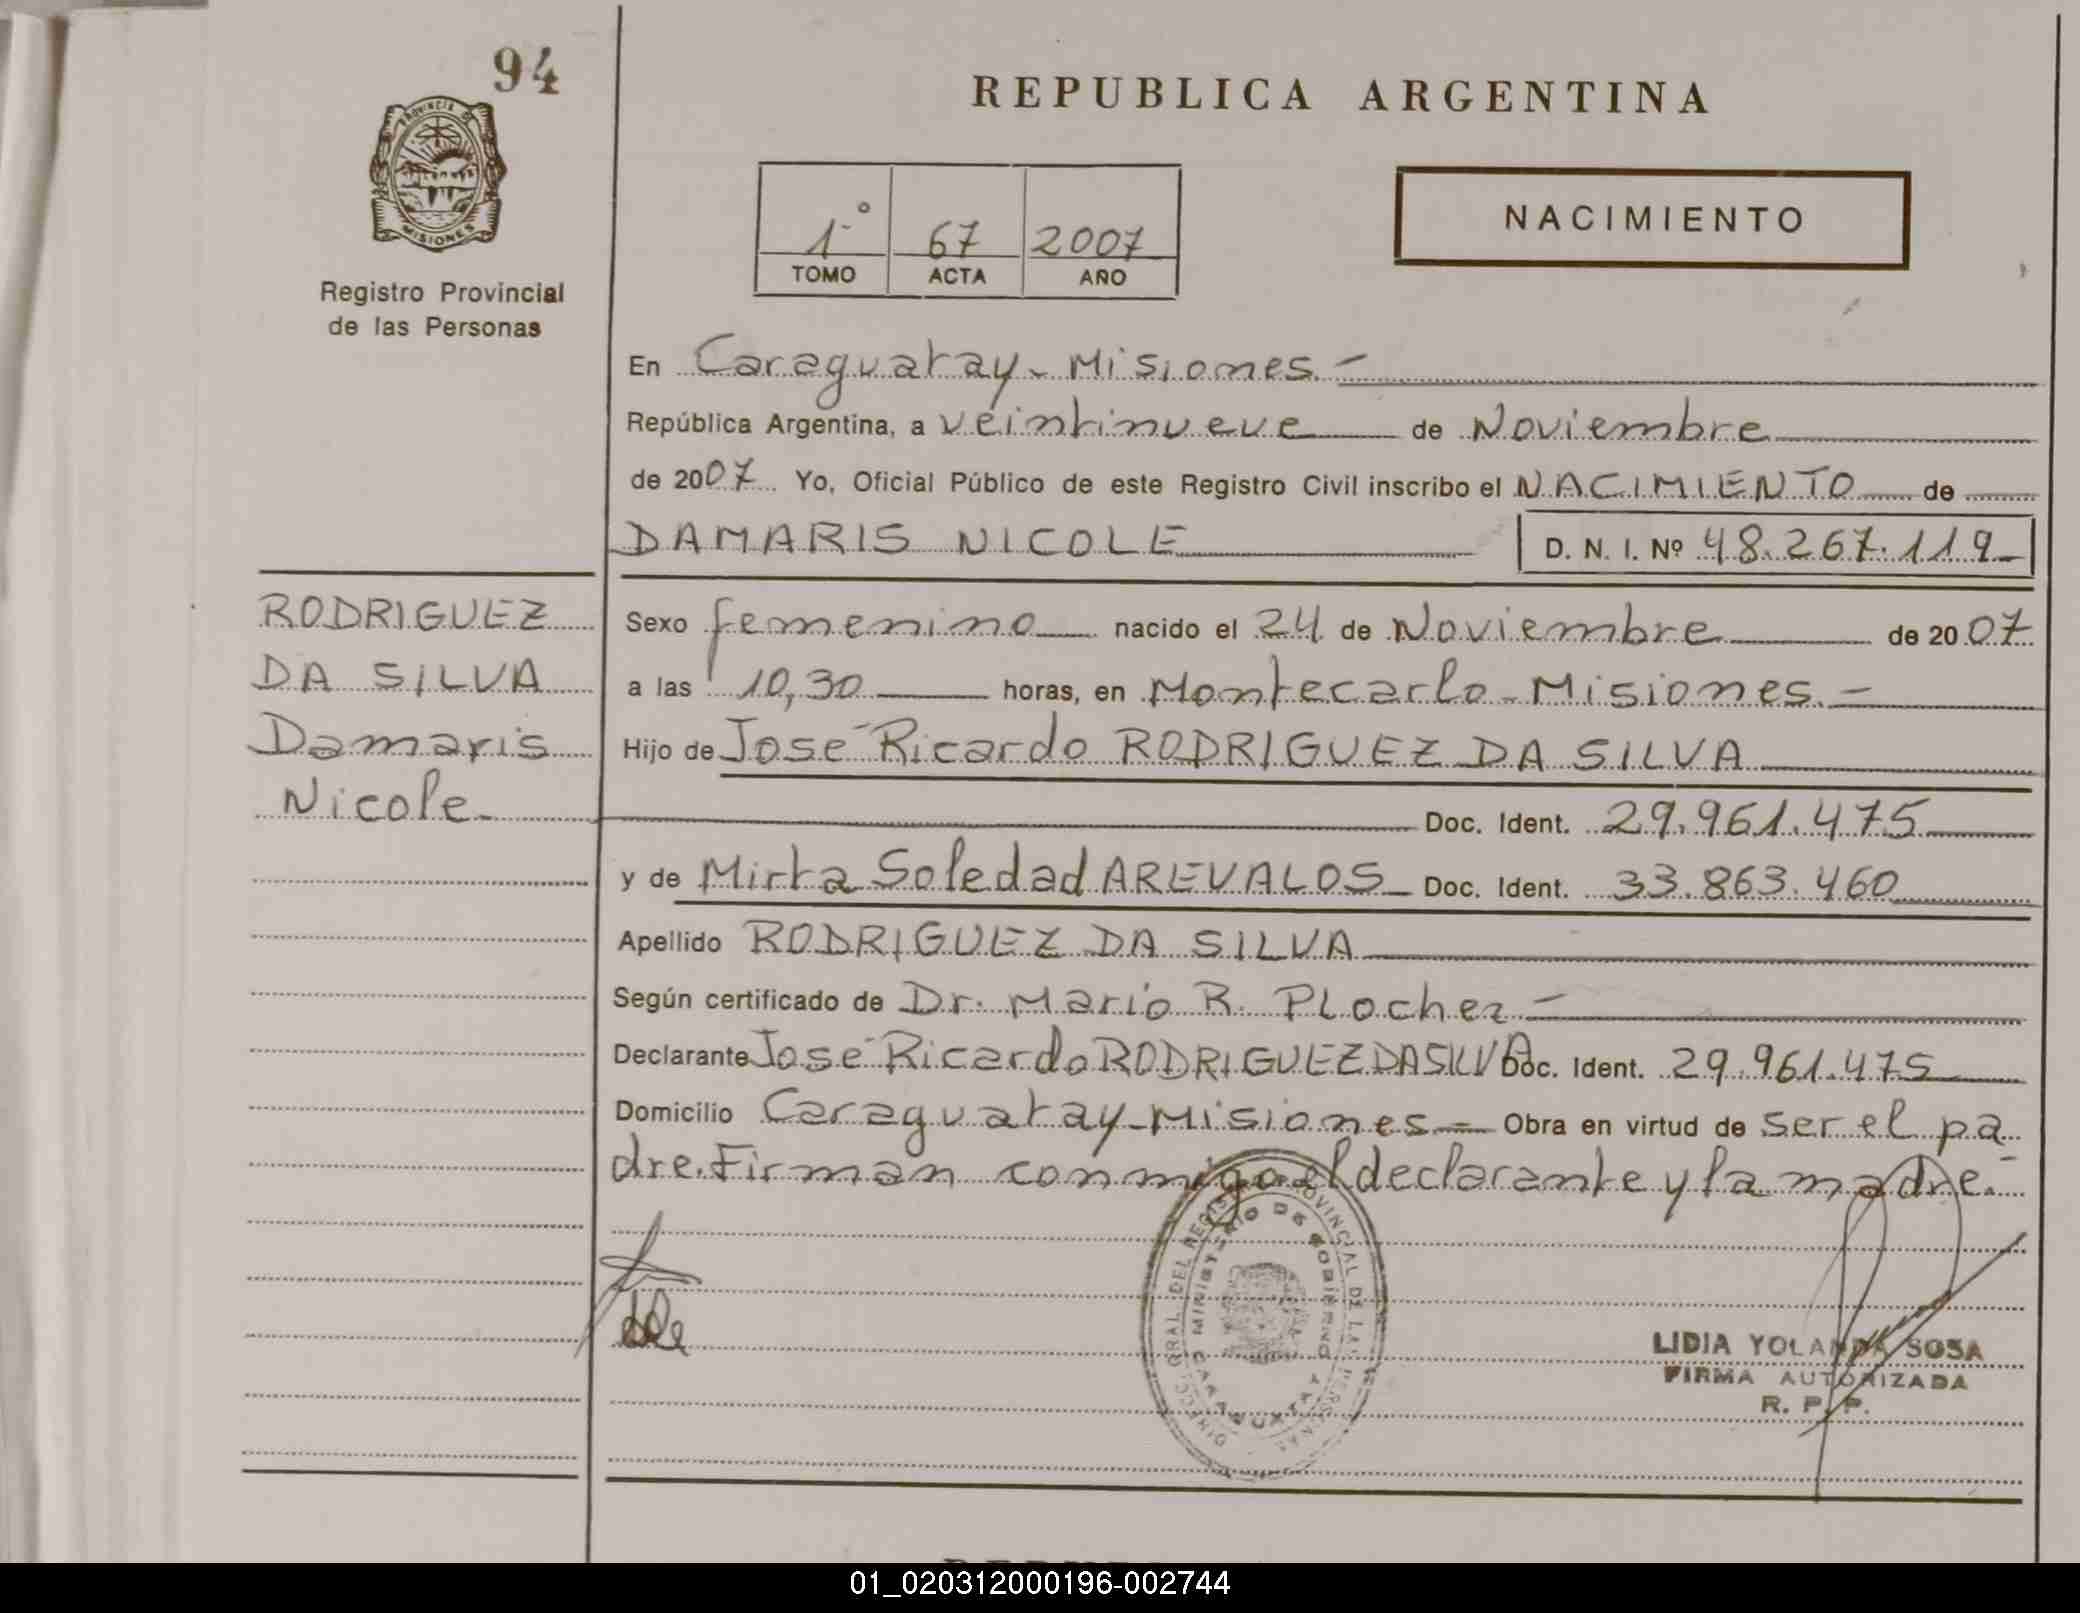 94
REPUBLICA ARGENTINA
PROVINCIA DE
MISIONES
Registro Provincial
de las Personas
1º 67 2007
TOMO ACTA AÑO
NACIMIENTO
En Caraguatay - Misiones. -
República Argentina, a veintinueve de Noviembre
de 2007 Yo, Oficial Público de este Registro Civil inscribo el NACIMIENTO de
DAMARIS NICOLE D. N. I. Nº 48.267.119
RODRIGUEZ
DA SILVA
Damaris
Nicole
Sexo femenino nacido el 24 de Noviembre de 2007
a las 10,30 horas, en Montecarlo - Misiones. -
Hijo de José Ricardo RODRIGUEZ DA SILVA
Doc. Ident. 29.961.475
y de Mirta Soledad AREVALOS Doc. Ident. 33.863.460
Apellido RODRIGUEZ DA SILVA
Según certificado de Dr. Mario R. PLocher -
Declarante José Ricardo RODRIGUEZ DA SILVA Doc. Ident. 29.961.475
Domicilio Caraguatay - Misiones - Obra en virtud de ser el pa
dre. Firman conmigo el declarante y la madre. -
DIRECC. GRAL. DEL REGISTRO PROVINCIAL DE LAS PERSONAS
MINISTERIO DE GOBIERNO
CARAGUATAY
LIDIA YOLANDA SOSA
FIRMA AUTORIZADA
R. P. P.
01_020312000196-002744